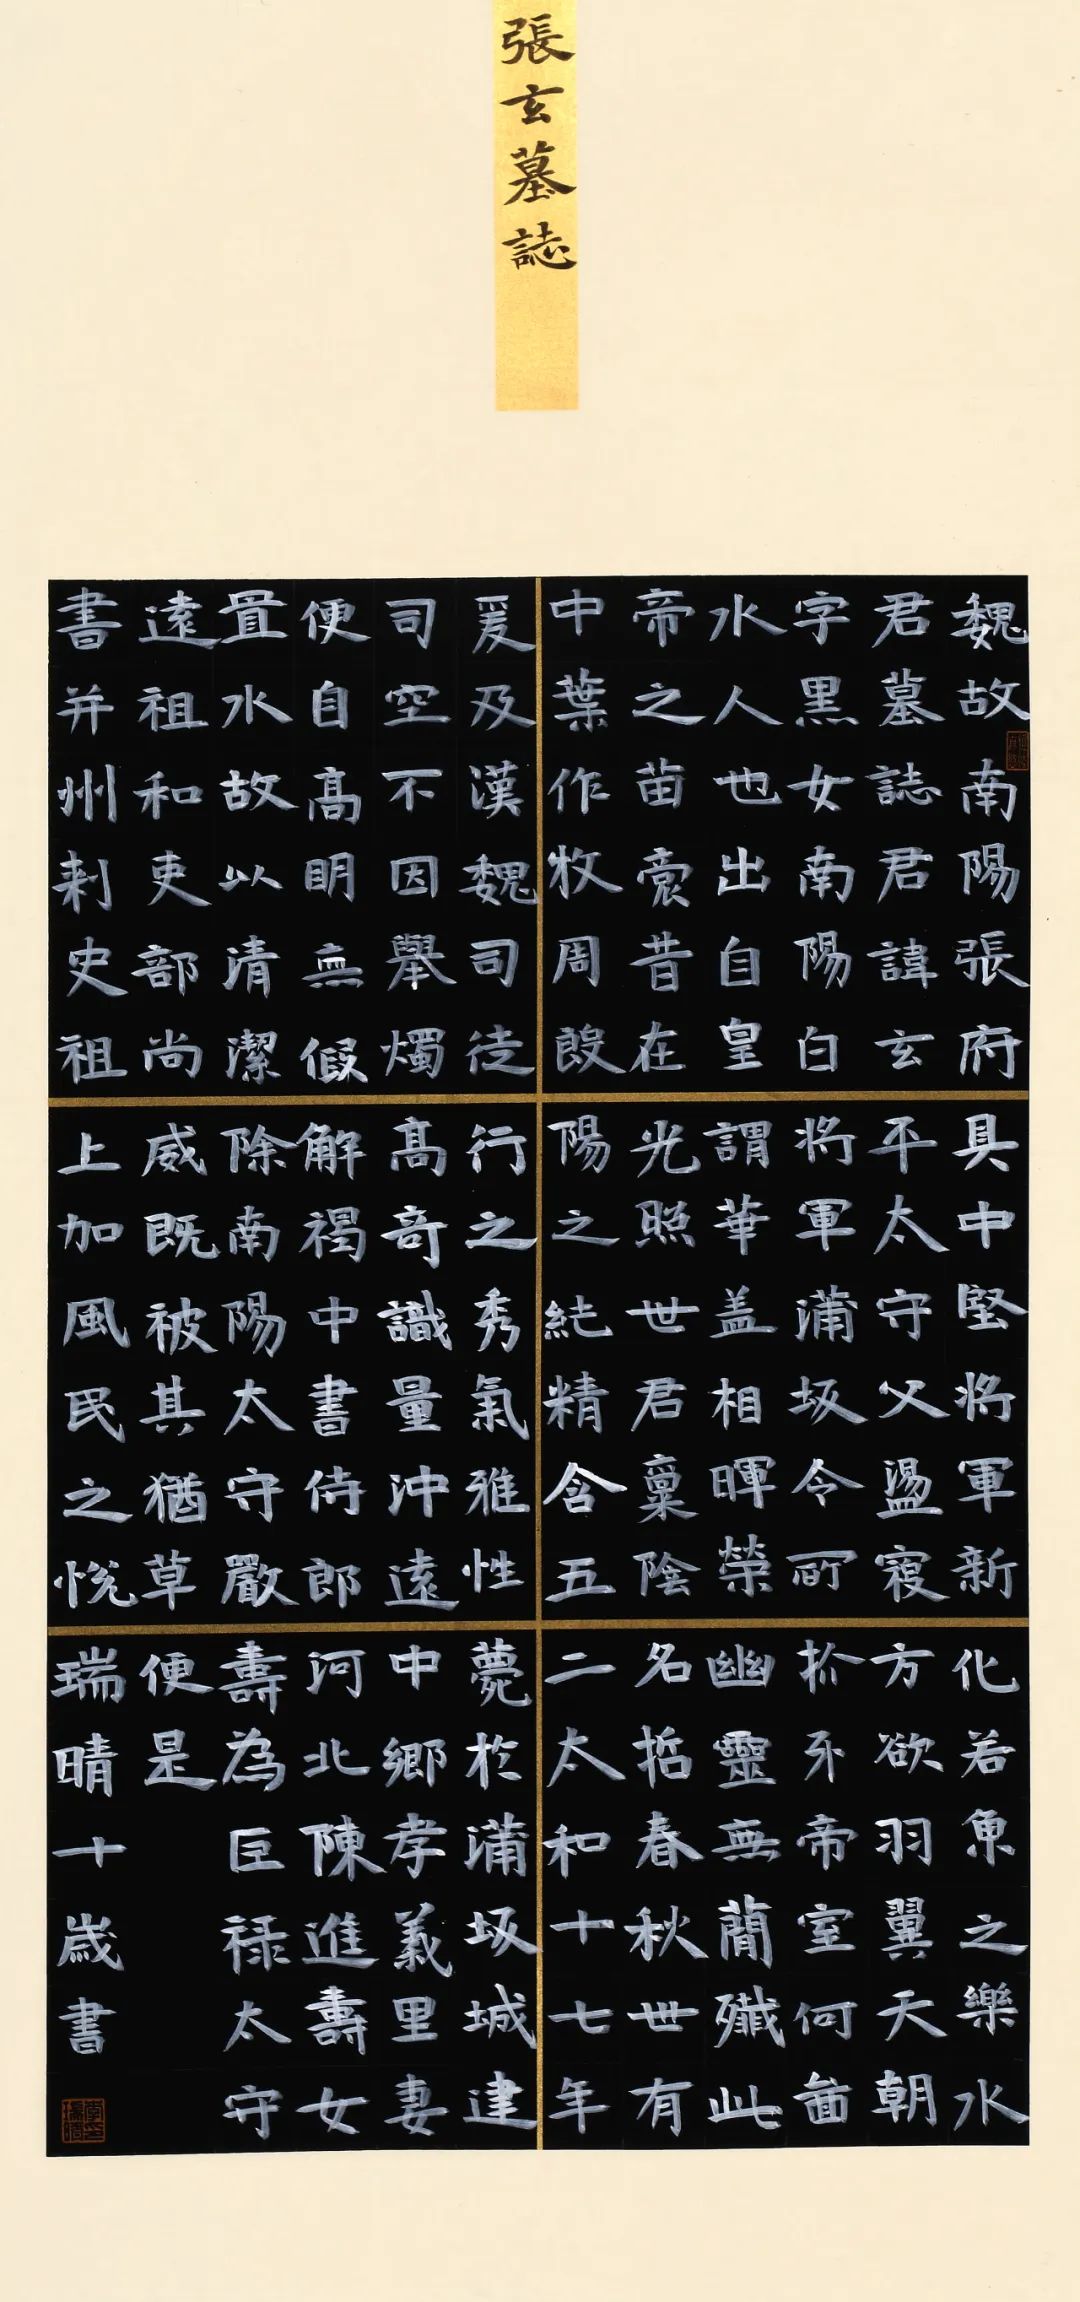 張玄墓誌
魏故南陽張府
君墓誌君諱玄
字黑女南陽白
水人也出自皇
帝之苗裔昔在
中葉作牧周殷
爰及漢魏司徒
司空不因舉燭
便自高明無假
置水故以清潔
遠祖和吏部尚
書并州刺史祖
具中堅将軍新
平太守父盪寇
将軍蒲坂令所
謂華盖相暉榮
光照世君稟陰
陽之純精含五
行之秀氣雅性
高奇識量沖遠
解褐中書侍郎
除南陽太守嚴
威既被其猶草
上加風民之悅
化若魚之樂水
方欲羽翼天朝
抓牙帝室何啚
幽靈無蕳殲此
名哲春秋世有
二太和十七年
薨於蒲坂城建
中鄉孝義里妻
河北陳進壽女
壽為巨祿太守
便是
瑞晴十歲書